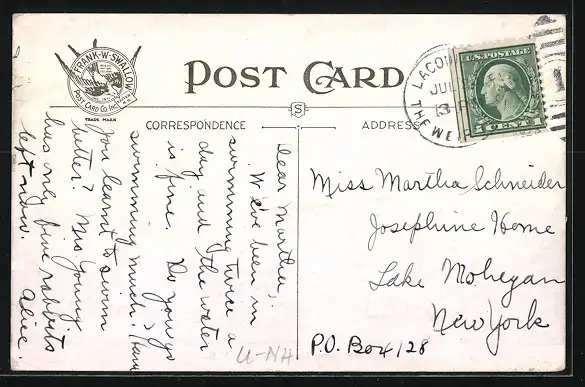 FRANK-W-SWALLOW
POST CARD Co. INC.
TRADE MARK
POST CARD
CORRESPONDENCE
ADDRESS
LACO
JUL
3
THE WEIRS
U.S. POSTAGE
1 CENT
1
Dear Martha,
We've been in
swimming twice a
day and the water
is fine. Do you go
swimming much? Have
you learnt to swim
better? Mrs Young
has only five rabbits
left now.
Alice.
U-NH
Miss Martha Schneider
Josephine Home
Lake Mohegan
New York
P.O. Box 128